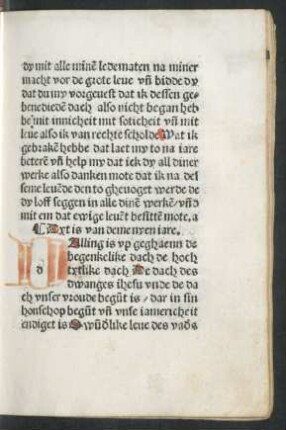 dy mit alle minē ledematen na miner
macht vor de grote leue vñ bidde dy
dat du my vorgeuest dat ik dessen ge-
benedieden dach also nicht began heb
be mit innicheit mit soticheit vñ mit
leue also ik van rechte scholde Wat ik
gebrakē hebbe dat laet my to na iare
beterē vñ help my dat ick dy all diner
werke also danken mote dat ik na des
seme leuēde den to ghevoget werde de
dy loff seggen in alle dinē werkē/ vñ
mit em dat ewige leuēt besittē mote. a
Txt is van deme nyen iare.
d Alling is vp geghaen de
begenkelike dach de hoch
txtlike dach De dach des
dwanges ihesu vnde de da
ch vnser vroude begūt is/ dar in sin
honschop begūt vñ vnse iamericheit
endiget is O wūdlike leue des vads